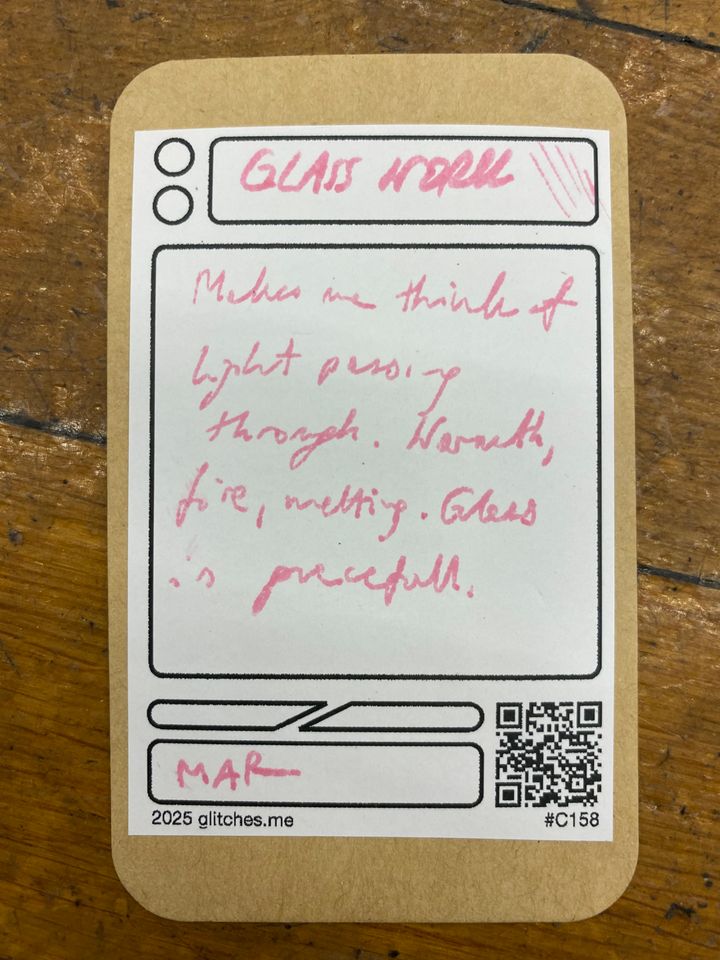 GLASS WORK
Makes me think of
light passing
through. Warmth,
fire, melting. Glass
is peacefull.
MAR
2025 glitches.me
#C158